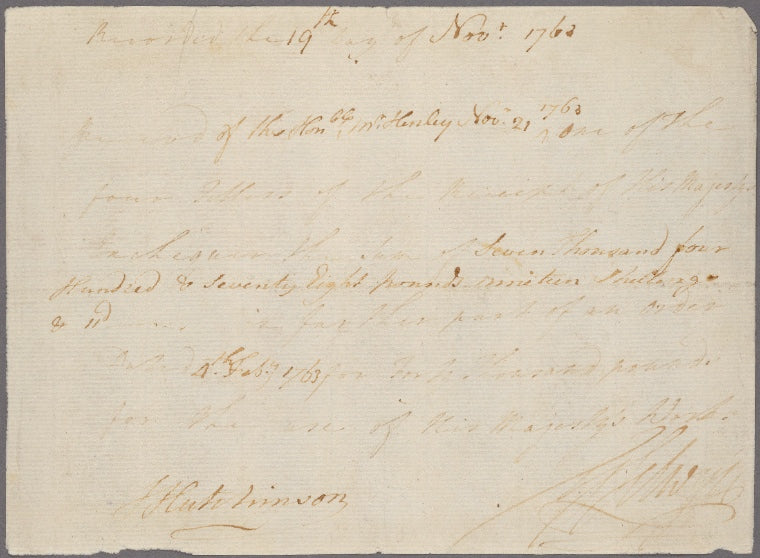 Recorded the 19th day of Novr. 1763
Received of the Honble. Mr Henley Novr. 21 1763 One of the
four Tellers of the Receipt of His Majestys
Exchequer the Sum of Seven Thousand four
Hundred & Seventy Eight pounds nineteen Shillings
& 11d in further part of an Order
Dated 4th Feby. 1763 for Thousand pounds
for the use of His Majesty's Works
J Hutchinson